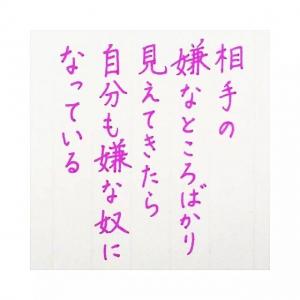 相手の
嫌なところばかり
見えてきたら
自分も嫌な奴に
なっている